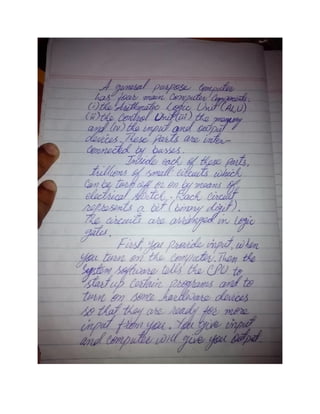 A general purpose computer
has four main computer components.
(i) the Arithmetic Logic Unit (ALU)
(ii) the Control Unit (iii) the memory
and (iv) the input and output
devices. These parts are inter-
connected by busses.
Inside each of these parts,
trillions of small circuits which
can be turn off or on by means of
electrical switch. Each circuit
represents a bit (binary digit).
The circuits are arranged in logic
gates.
First, you provide input, when
you turn on the computer. Then the
system software tells the CPU to
start up certain programs and to
turn on some hardware devices
so that they are ready for more
input from you. You give input
and computer will give you output.